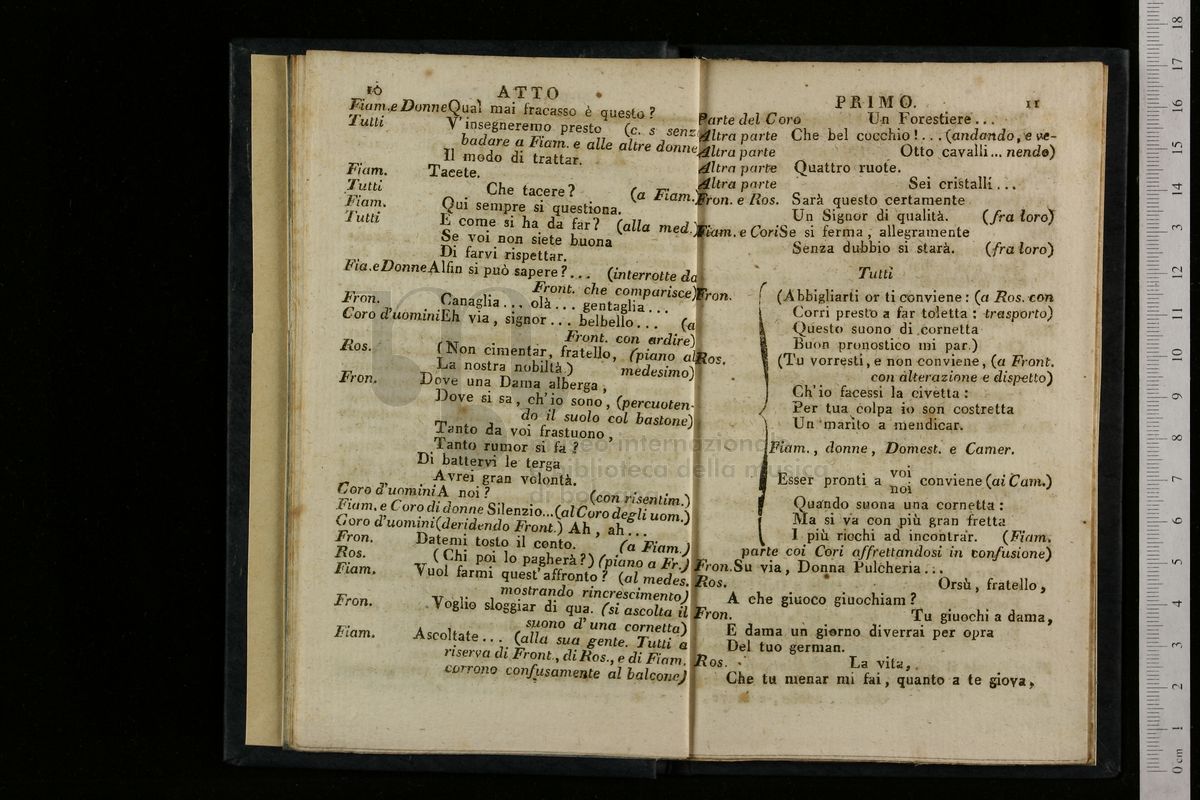 10 ATTO
Fiam. e Donne Qual mai fracasso è questo?
Tutti V'insegneremo presto (c. s senza
badare a Fiam. e alle altre donne
Il modo di trattar.
Fiam. Tacete.
Tutti Che tacere? (a Fiam.)
Fiam. Qui sempre si questiona.
Tutti E come si ha da far? (alla med.)
Se voi non siete buona
Di farvi rispettar.
Fia. e Donne Alfin si può sapere?... (interrotte da
Front. che comparisce)
Fron. Canaglia... olà... gentaglia...
Coro d'uomini Eh via, signor... belbello... (a
Front. con ardire)
Ros. (Non cimentar, fratello, (piano al
La nostra nobiltà.) medesimo)
Fron. Dove una Dama alberga,
Dove si sa, ch'io sono, (percuoten-
do il suolo col bastone)
Tanto da voi frastuono,
Tanto rumor si fa?
Di battervi le terga
Avrei gran volontà.
Coro d'uomini A noi? (con risentim.)
Fiam. e Coro di donne Silenzio...(al Coro degli uom.)
Coro d'uomini (deridendo Front.) Ah, ah...
Fron. Datemi tosto il conto. (a Fiam.)
Ros. (Chi poi lo pagherà?) (piano a Fr.)
Fiam. Vuol farmi quest'affronto? (al medes.
mostrando rincrescimento)
Fron. Voglio sloggiar di qua. (si ascolta il
suono d'una cornetta)
Fiam. Ascoltate... (alla sua gente. Tutti a
riserva di Front., di Ros., e di Fiam.
corrono confusamente al balcone)
PRIMO. 11
Parte del Coro Un Forestiere...
Altra parte Che bel cocchio!...(andando, e ve-
Altra parte Otto cavalli... nendo)
Altra parte Quattro ruote.
Altra parte Sei cristalli...
Fron. e Ros. Sarà questo certamente
Un Signor di qualità. (fra loro)
Fiam. e Cori Se si ferma, allegramente
Senza dubbio si starà. (fra loro)
Tutti
Fron. (Abbigliarti or ti conviene: (a Ros. con
Corri presto a far toletta: trasporto)
Questo suono di cornetta
Buon pronostico mi par.)
Ros. (Tu vorresti, e non conviene, (a Front.
con alterazione e dispetto)
Ch'io facessi la civetta:
Per tua colpa io son costretta
Un marito a mendicar.
Fiam., donne, Domest. e Camer.
Esser pronti a voi noi conviene (ai Cam.)
Quando suona una cornetta:
Ma si va con più gran fretta
I più ricchi ad incontrar. (Fiam.
parte coi Cori affrettandosi in confusione)
Fron. Su via, Donna Pulcheria...
Ros. Orsù, fratello,
A che giuoco giuochiam?
Fron. Tu giuochi a dama,
E dama un giorno diverrai per opra
Del tuo german.
Ros. La vita,
Che tu menar mi fai, quanto a te giova,
museo internazionale
e biblioteca della musica
di bologna